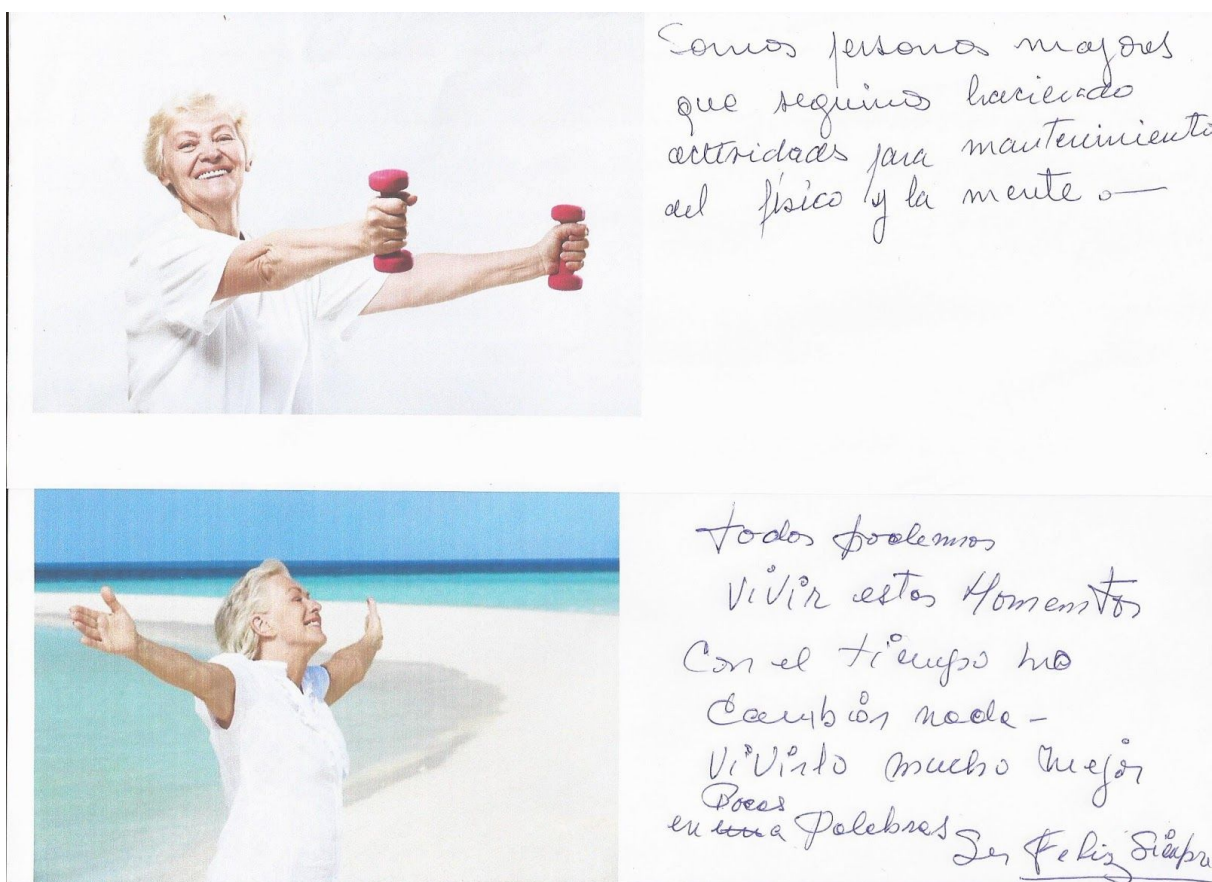 Somos personas mayores
que seguimos haciendo
actividades para mantenimiento
del físico y la mente.—
todos podemos
vivir estos Momentos
Con el tiempo no
cambión nada -
vivirlo mucho mejor
Pocas
en a Palabras Ser Feliz Siempre